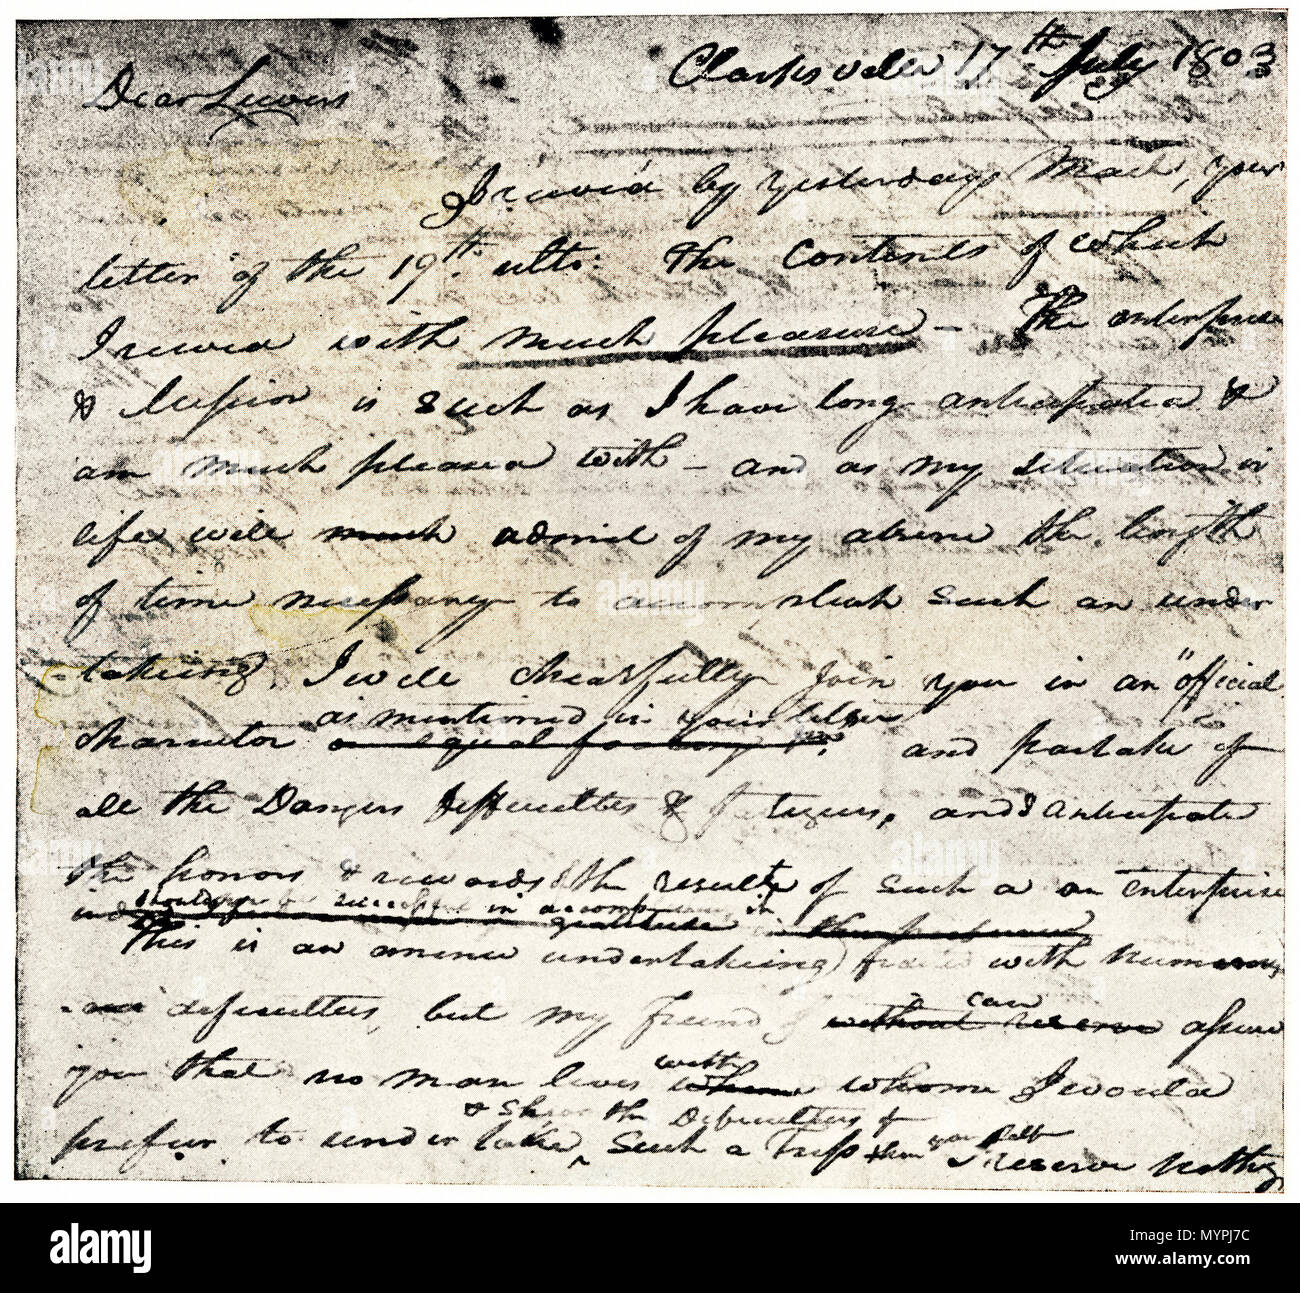 Clarksville 17th July 1803
Dear Lewis
I receivd by yesterdays Mail, your
letter of the 19th ulto. The Contents of which
I receivd with much pleasure – The enterprise
& Mission is such as I have long anticipated &
am much pleased with – and as my situation in
life will much admit of my absence the length
of time necessary to accomplish such an under
-taking, I will chearfully join you in an "official
as mentioned in your letter
charrector on equal footing &c." and partake of
all the Dangers Difficulties & fatigues, and I anticipate
the honors & rewards of the result of such a an enterprise
should we be successful in accomplishing it
This is an amence undertaking fraited with numerous
difficulties, but my friend I can
without reserve assure
with
you that no man lives whome I would
& Share the Difficulties of
prefur to under take Such a Trip than your self
& reserve nothing
alamy
Image ID: MYPJ7C
www.alamy.com